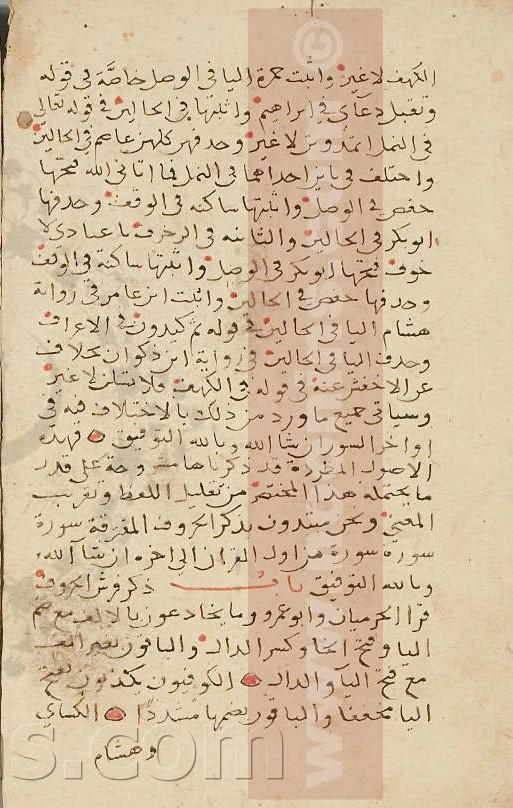 الكهف لا غير واثبت حمزة اليا في الوصل خاصّة في قوله
وتقبل دعآي في ابراهيم واثبتها في الحالين في قوله تعالى
في النمل اتمدونن لا غير وحذفهن كلهن عاصم في الحالين
واختلف في يايين احداهما في النمل فما اتاني الله فتحها
حفص في الوصل واثبتها ساكنه في الوقف وحذفها
ابو بكر في الحالين والثانيه في الزخرف يا عبادي لا
خوف فتحها ابو بكر في الوصل واثبتها ساكنة في الوقف
وحذفها حفص في الحالين واثبت ابن عامر في رواية
هشام اليا في الحالين في قوله ثم كيدون في الاعراف
وحذف اليا في الحالين في رواية ابن ذكوان بخلاف
عن الاخفش عنه في قوله في الكهف فلا تسئلن لا غير
وسياتي جميع ما ورد من ذلك بالاختلاف فيه في
اواخر السور ان شا الله وبالله التوفيق فهذه
الاصول المطردة قد ذكرناها مشروحة على قدر
ما يحتمله هذا المختصر من تقليل اللفظ وتقريب
المعنى ونحن مبتدون بذكر الحروف المفرقة سورة
سورة سورة من اول القران الى اخره ان شآ الله
وبالله التوفيق باب ذكر فرش الحروف
قرا الحرميان وابو عمرو وما يخادعون بالالف مع ضم
اليا وفتح الخا وكسر الدال والباقون بغير الف
مع فتح اليآ والدال الكوفيون يكذبون بفتح
اليا مخففا والباقون بضمها مشددًا الكساي
وهشام
www.
ns.com